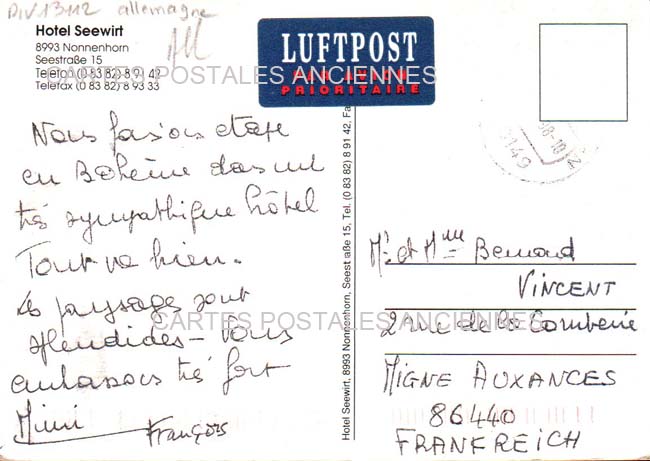 DIV13112 allemagne
All
Hotel Seewirt
8993 Nonnenhorn
Seestraße 15
Telefon (0 83 82) 8 91 42
Telefax (0 83 82) 8 93 33
LUFTPOST
PAR AVION
PRIORITAIRE
CARTES POSTALES ANCIENNES
Nous faisons etape
en Bohême dans un
très sympathique hôtel
Tout va bien.
Les paysages sont
splendides - Vous
embrassons très fort
Mimi
François
Hotel Seewirt, 8993 Nonnenhorn, Seestraße 15, Tel. (0 83 82) 8 91 42, Fa
Mr et Mme Bernard
VINCENT
2 rue de la Comberie
MIGNE AUXANCES
86440
FRANKREICH
CARTES POSTALES ANCIENNES